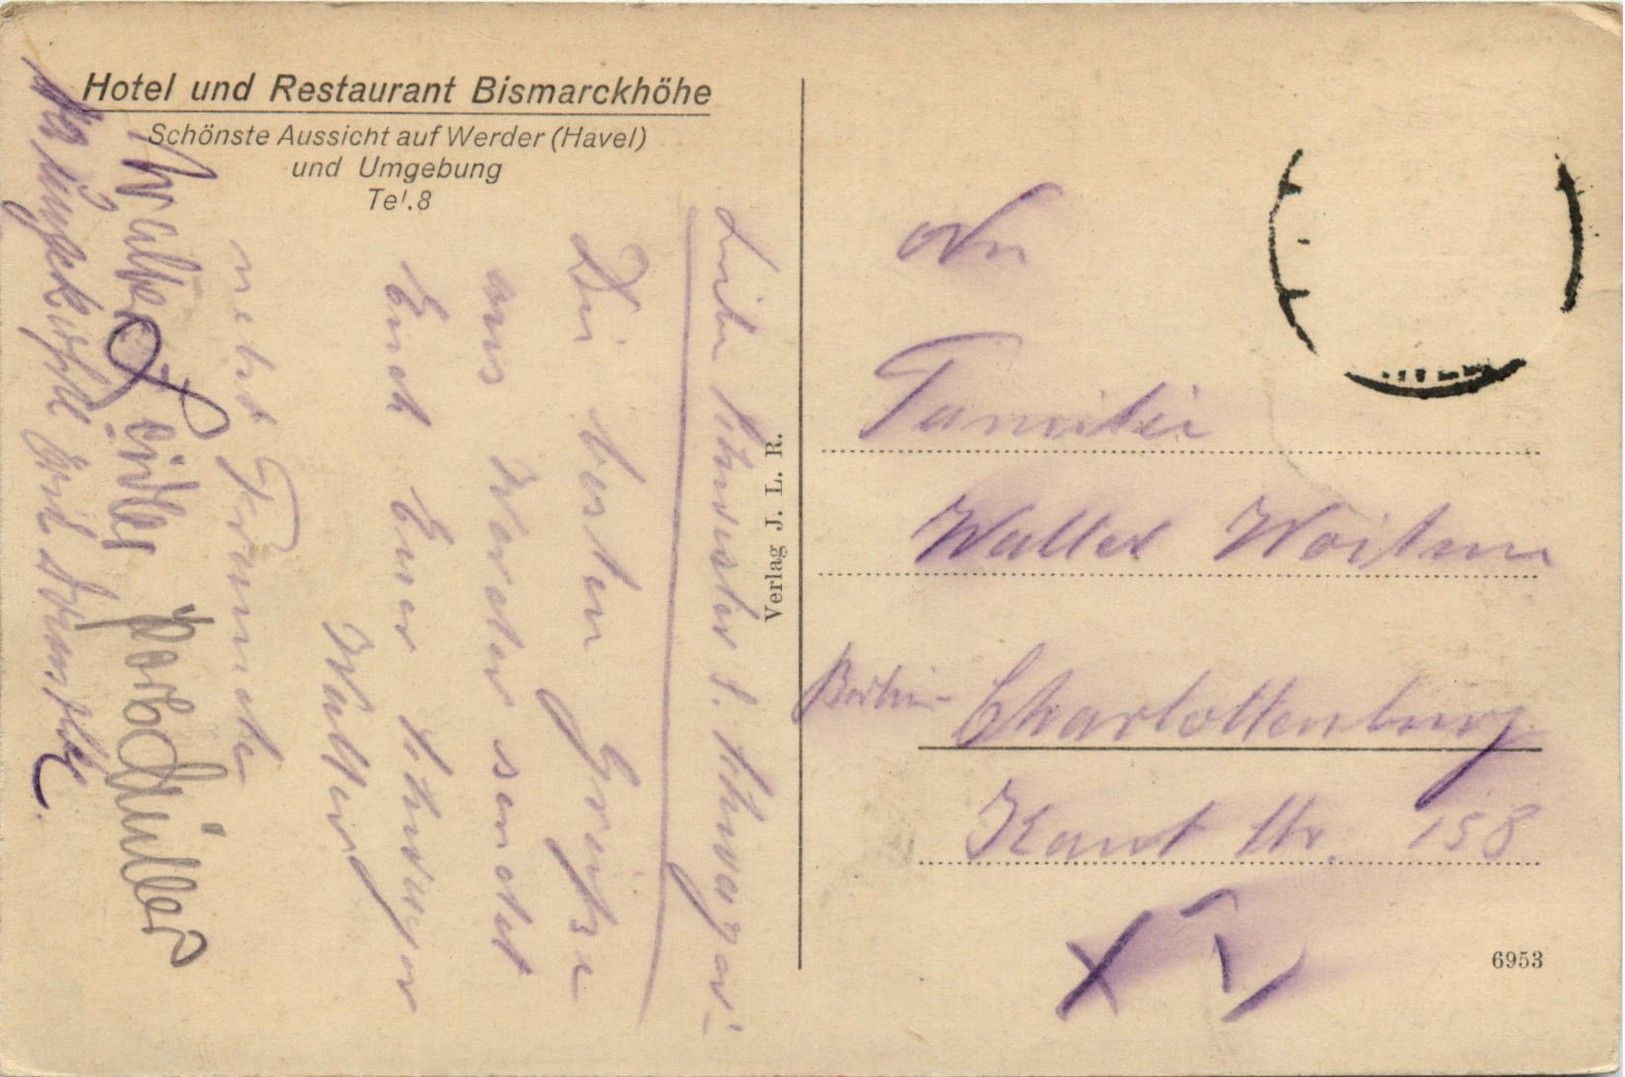 Hotel und Restaurant Bismarckhöhe
Schönste Aussicht auf Werder (Havel)
und Umgebung
Tel.8
Liebe Schwester u. Schwager!
Die besten Grüße
aus Werder sendet
Euch Euer Schwager
Walter
nebst Freunde
Walter
Müller
Verlag J. L. R.
An
Familie
Walter
Berlin-
Charlottenburg
Kant Str. 158
6953